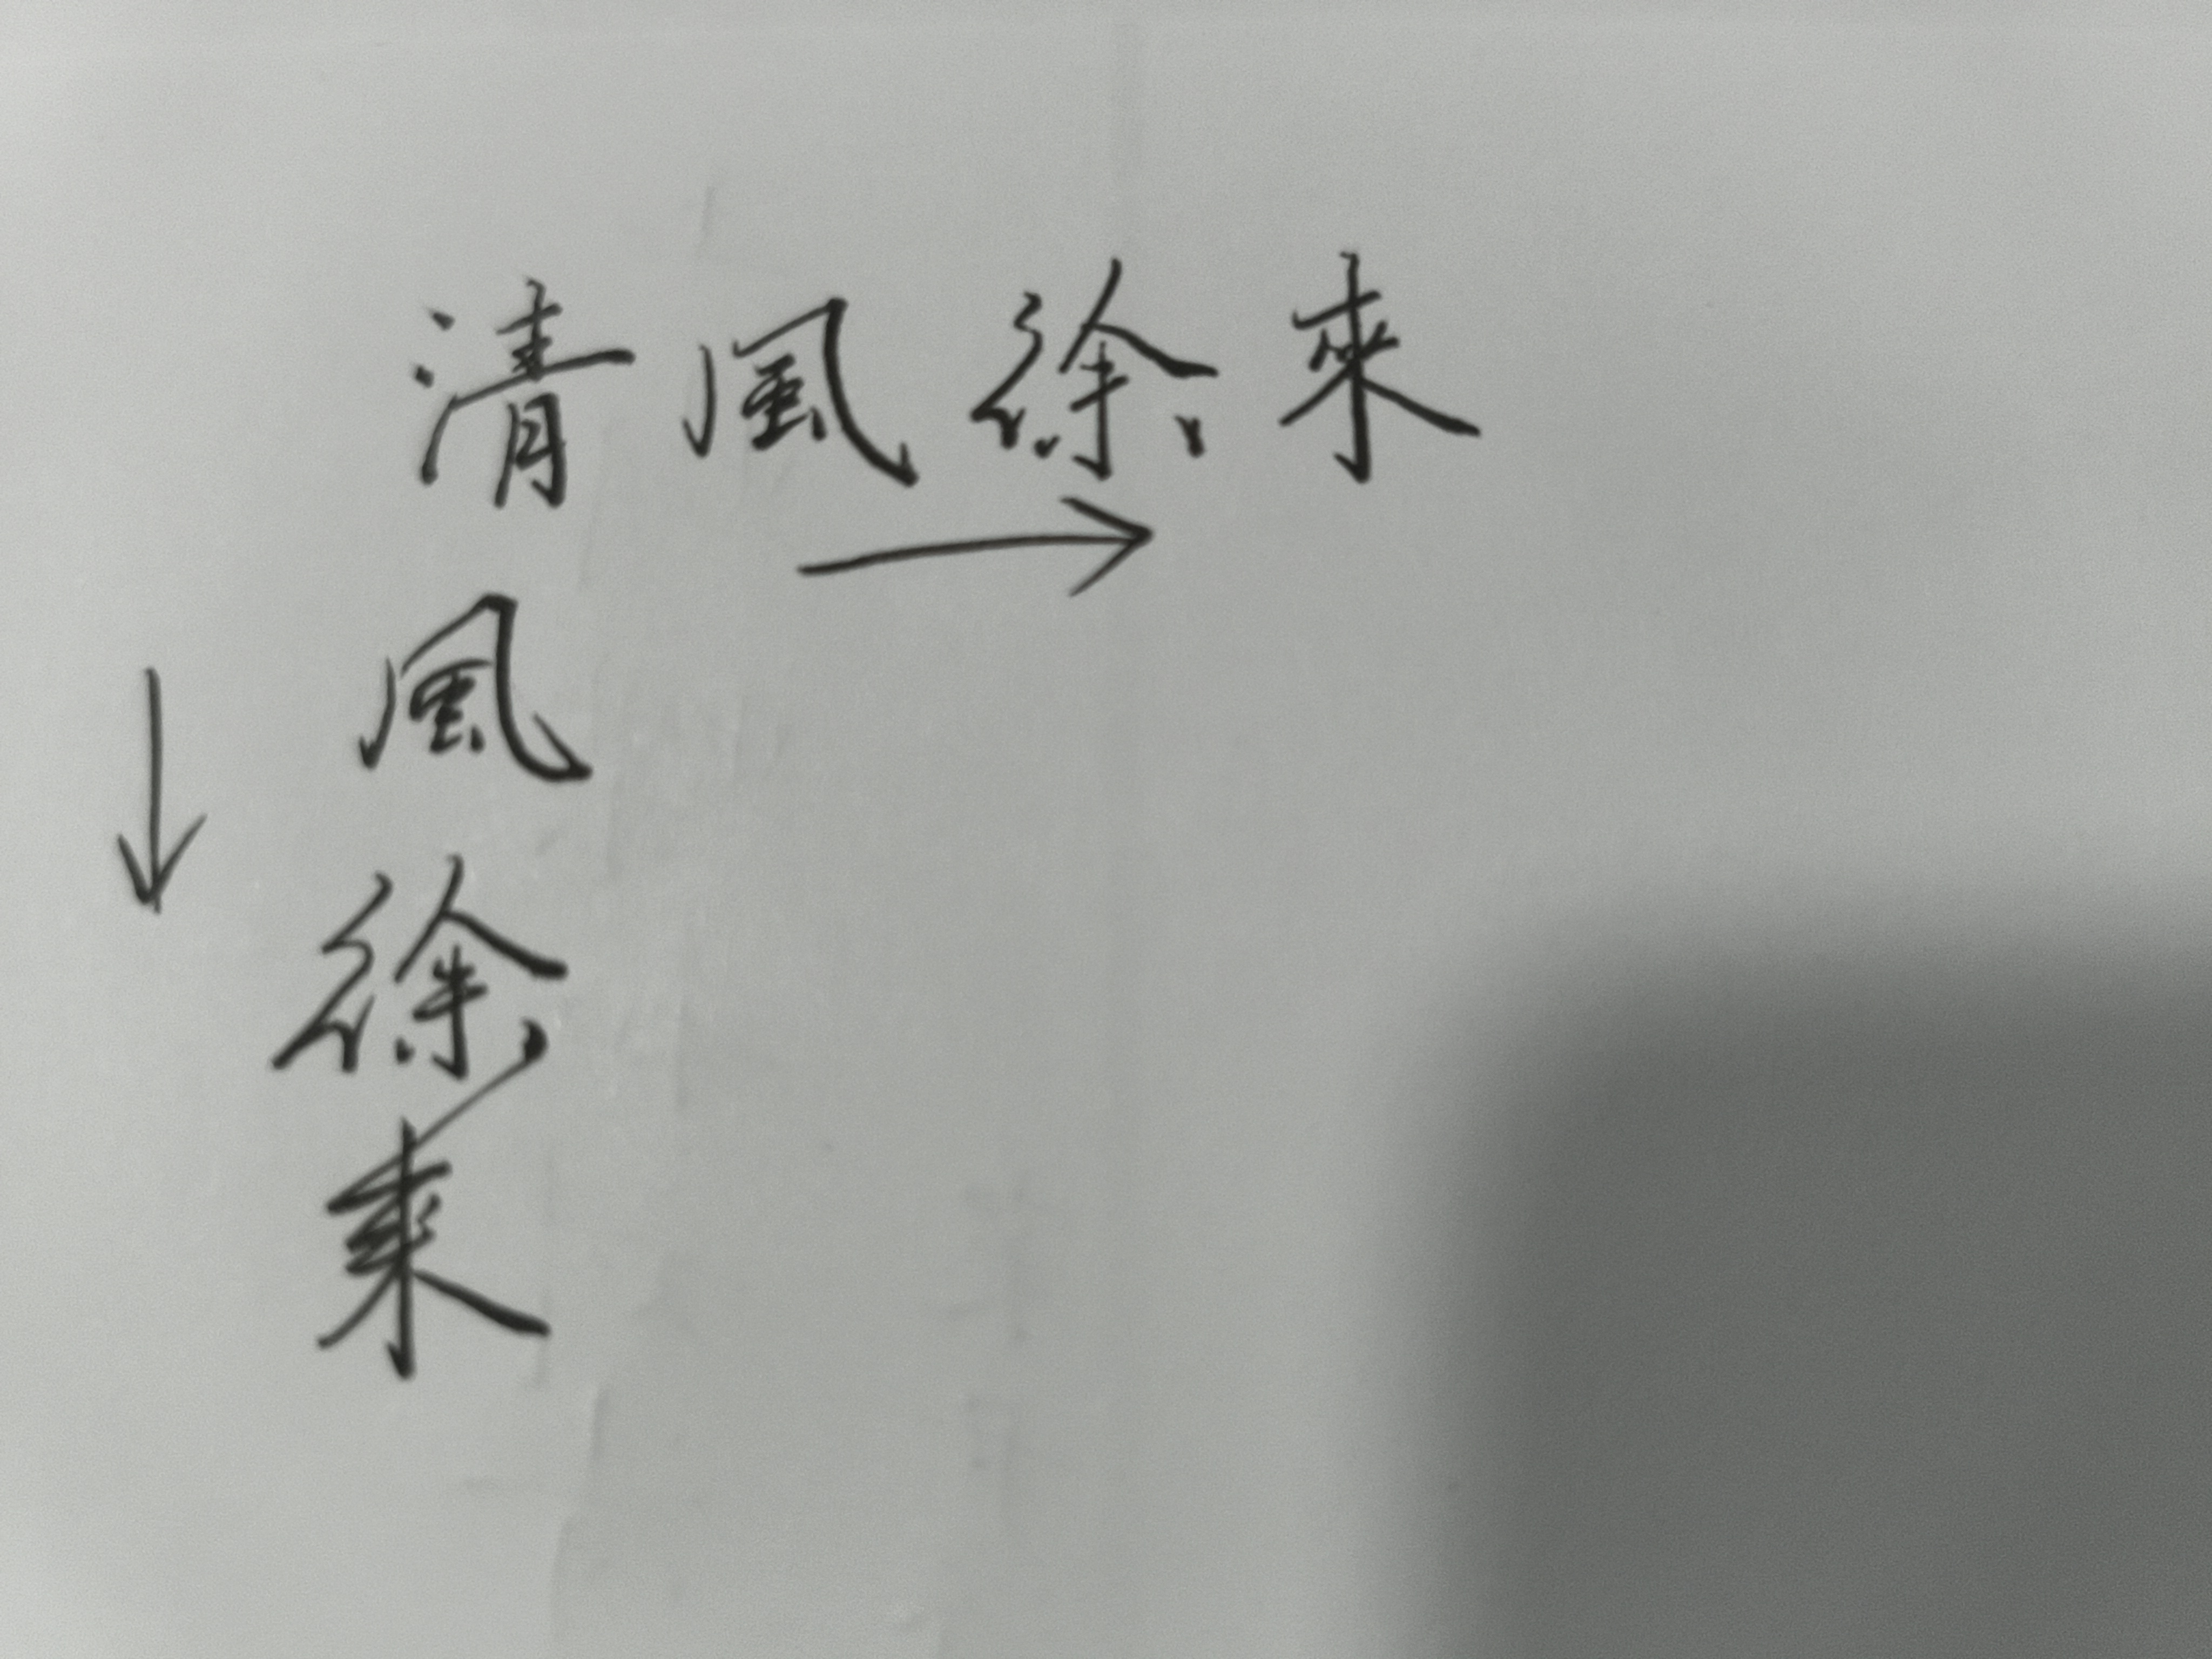 清風徐來
風
徐
來